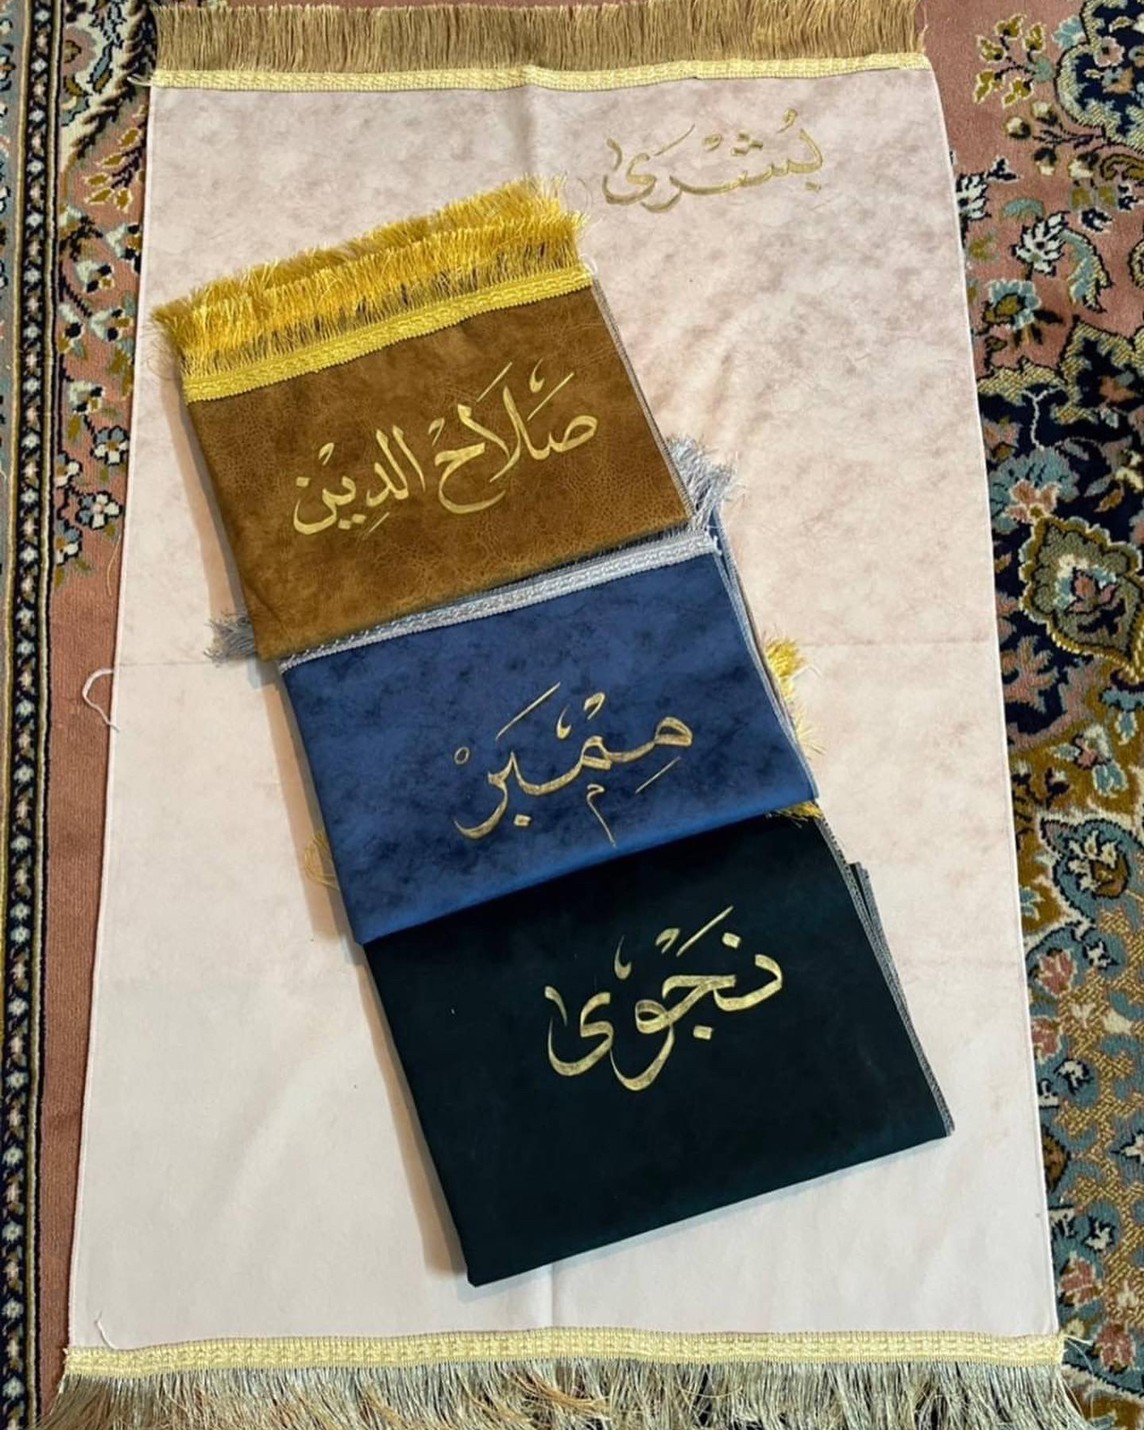 بُشْرَىٰ
صَلَاحْ الدِيْن
مِمْبَرْ
نَجْوىٰ